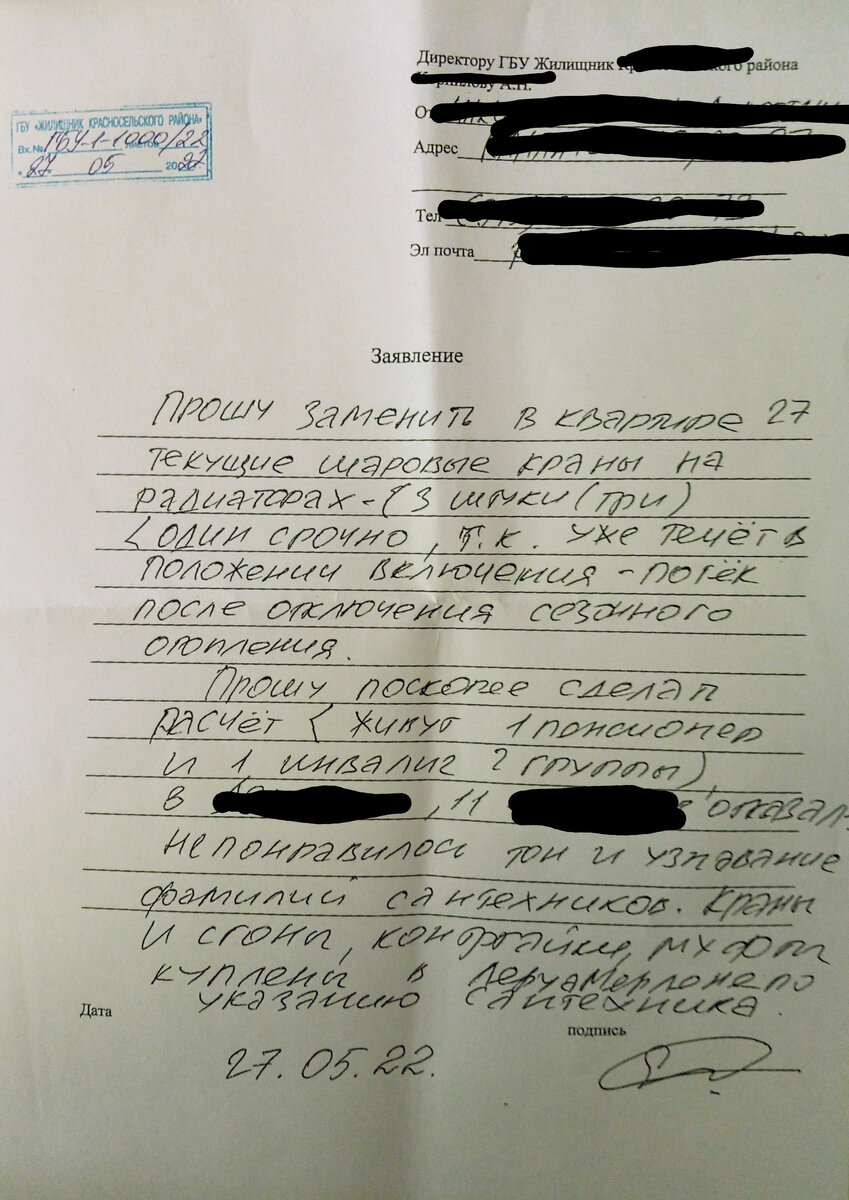 Директору ГБУ Жилищник района
ГБУ «ЖИЛИЩНИК КРАСНОСЕЛЬСКОГО РАЙОНА»
Вх.№ ГБУ-1-1000/22 листов
«27» 05 2022
Адрес
Тел
Эл почта
Заявление
Прошу заменить в квартире 27
текущие шаровые краны на
радиаторах - (3 штуки (три)
(один срочно, т.к. уже течёт в
положении включения - потёк
после отключения сезонного
отопления.
Прошу поскорее сделат
расчёт (живут 1 пенсионер
и 1 инвалид 2 группы),
в , 11 отказал
Не понравилось тон и узнавание
фамилий сантехников. Краны
и сгоны, контргайки, муфты
куплены в Леруа Мерлене по
указанию сантехника.
Дата
подпись
27.05.22.